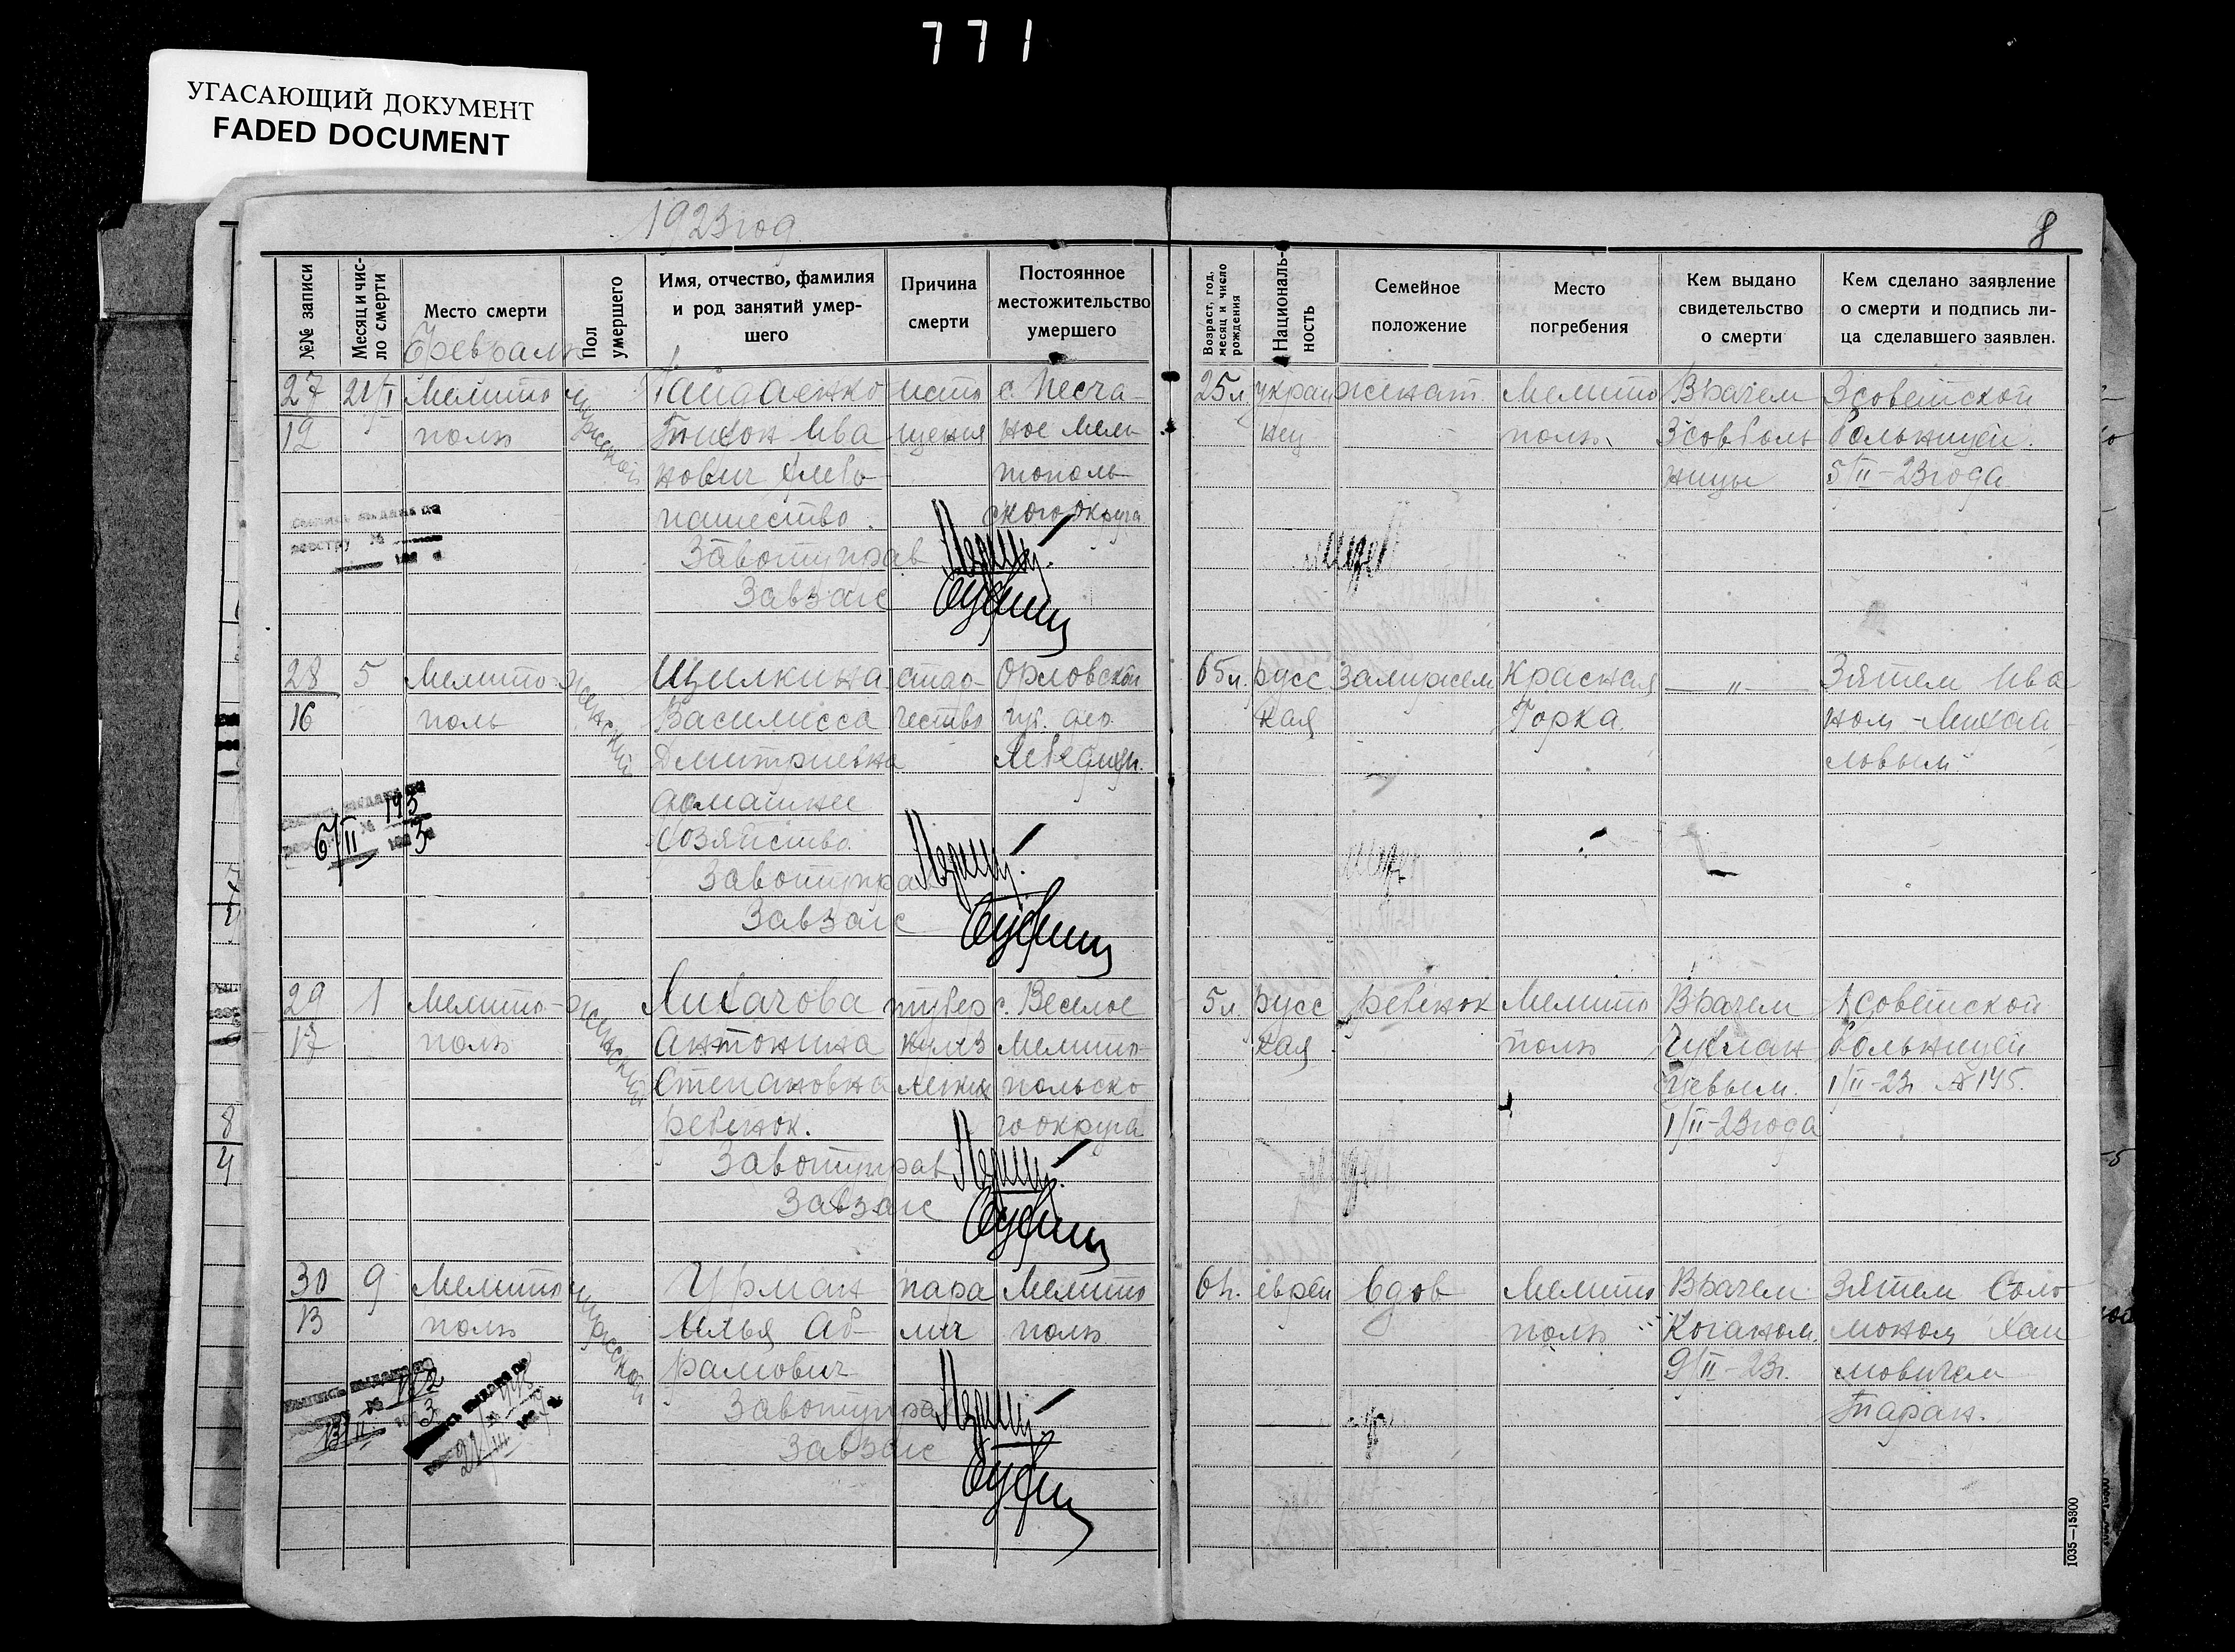 771
УГАСАЮЩИЙ ДОКУМЕНТ
FADED DOCUMENT
1923 год
8
№№ записи
Месяц и чис-
ло смерти
Место смерти
Февраль
Пол
умершего
Имя, отчество, фамилия
и род занятий умер-
шего
Причина
смерти
Постоянное
местожительство
умершего
Возраст, год,
месяц и число
рождения
Националь-
ность
Семейное
положение
Место
погребения
Кем выдано
свидетельство
о смерти
Кем сделано заявление
о смерти и подпись ли-
ца сделавшего заявлен.
27
12
Мелито
поль
мужской
Гайдаенко
Тихон Ива
нович хлебо
пашество.
Завотуправ
Завзагс
исто
щения
с. Песча-
ное Мели
тополь
ского округа
25 л.
украи
нец
женат.
Мелито
поль
Врачем
3 совболь
ницы
3 советской
больницей.
5/II-23 года
28
16
5
Мелито-
поль
женский
Щилкина
Василисса
Дмитриевна
домашнее
хозяйство.
Завотуправ
Завзагс
стар-
чество
Орловской
губ. дер.
6/II
193
3
65 л.
русс
кая
Замужем
Красная
Горка.
— " —
Зятем Ива
ном Михай
ловым
29
17
1
Мелито-
поль
женский
Лихачова
Антонина
Степановна
ребенок.
Завотуправ
Завзагс
тубер
кулез
легких
с. Веселое
Мелито-
польско
го округа
5 л.
русс
кая
ребенок
Мелито
поль
Врачем
1/II-23 года
1 советской
больницей
1/II-23г. № 175.
30
13
9
Мелито
поль
мужской
Урман
Илья Аб-
рамович
Завотуправ
Завзагс
пара
лич
Мелито
поль.
еврей
вдов
Мелито
поль
Врачем
Коганом.
9/II-23г.
Зятем Соло
моном Хаи
мовичем
Таран.
1035—15800